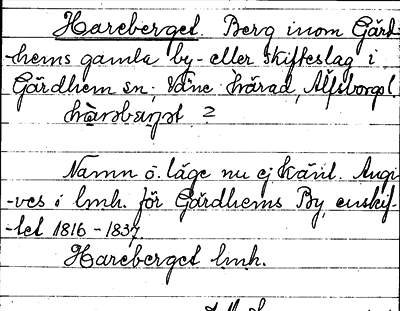 Hareberget. Berg inom Gärd-
-hems gamla by- eller skifteslag i
Gärdhem sn, Väne härad, Älfsborgs l.
2
Namn o. läge nu ej känt. Angi-
-ves i lmh. för Gärdhems By, enskif-
-tet 1816-1837
Hareberget lmh.